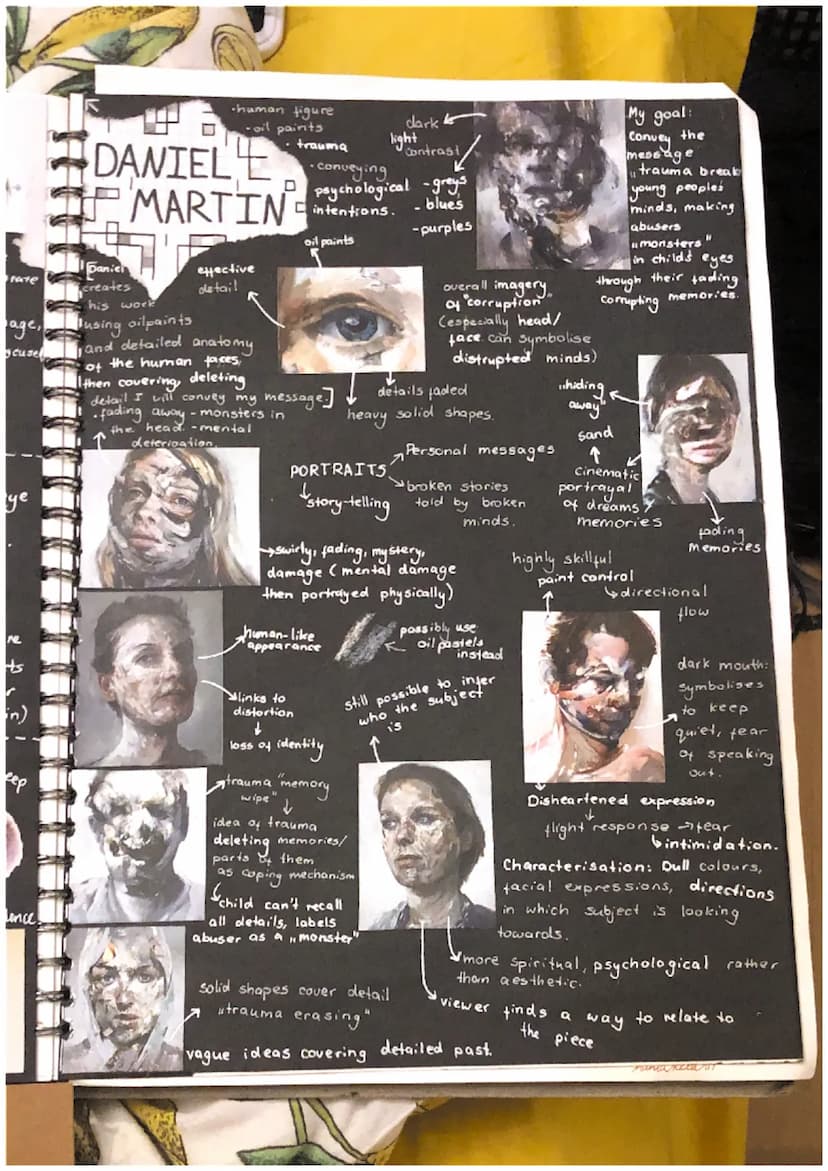 DANIEL
MARTIN
• human figure
• oil paints
• trauma
• conveying
psychological
intentions.
dark
light
contrast
- greys
- blues
- purples
My goal:
Convey the
message
„trauma break
young peoples
minds, making
abusers
„monsters"
in child's eyes
through their fading
corrupting memories.
oil paints
effective
detail
[Daniel
creates
his work
using oilpaints
and detailed anatomy
of the human faces,
then covering, deleting
detail I will convey my message.]
• fading away - monsters in
the head. - mental
deterioation.
details faded
heavy solid shapes.
overall imagery
of "corruption"
(especially head/
face can symbolise
distrupted minds)
„hiding
away"
sand
cinematic
portrayal
of dreams
memories
fading
memories
PORTRAITS
Personal messages
broken stories
told by broken
minds.
story-telling
swirly, fading, mystery,
damage (mental damage
then portrayed physically)
highly skillful
paint control
directional
flow
human-like
appearance
links to
distortion
loss of identity
possibly use
oil pastels
instead
still possible to infer
who the subject
is
dark mouth:
symbolises
to keep
quiet, fear
of speaking
out.
trauma "memory
wipe"
idea of trauma
deleting memories/
parts of them
as coping mechanism
child can't recall
all details, labels
abuser as a „monster"
Disheartened expression
flight response → fear
intimidation.
Characterisation: Dull colours,
facial expressions, directions
in which subject is looking
towards.
more spiritual, psychological rather
than aesthetic.
viewer finds a way to relate to
the piece
solid shapes cover detail
„trauma erasing"
vague ideas covering detailed past.